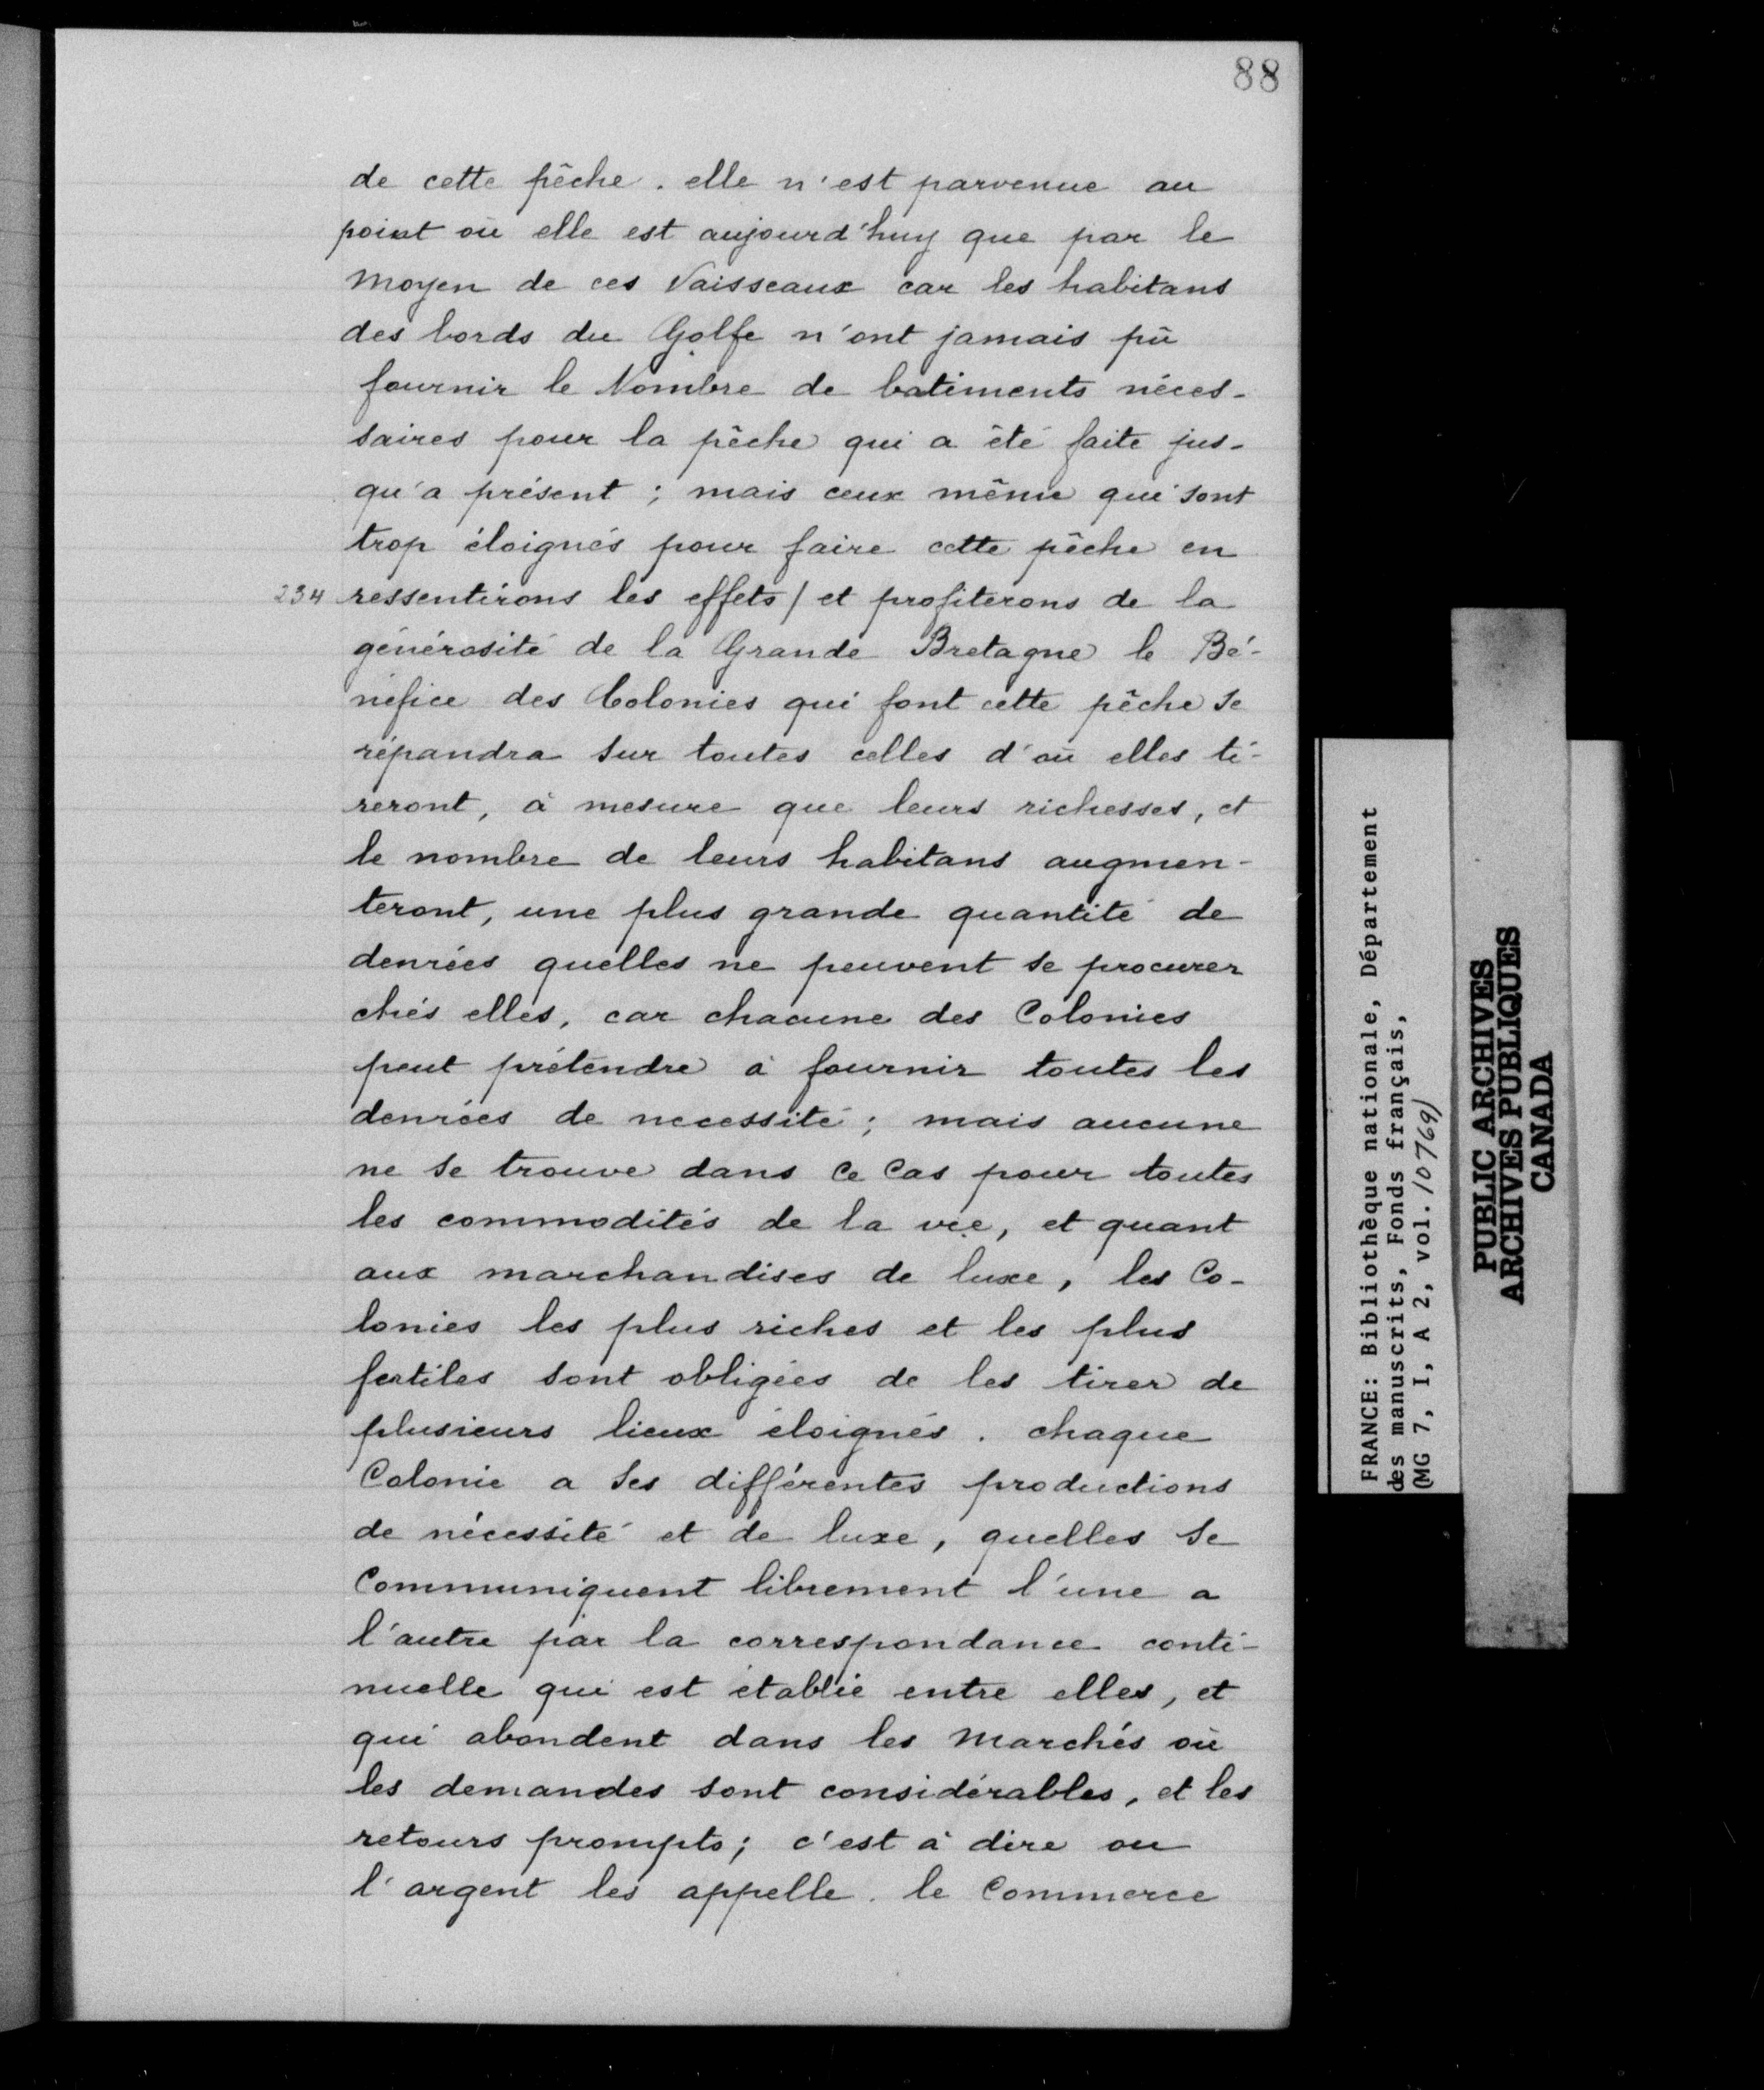 88
de cette pêche. elle n'est parvenue au
point où elle est aujourd'huy que par le
moyen de ces Vaisseaux car les habitans
des bords du Golfe n'ont jamais pû
fournir le Nombre de batiments néces-
saires pour la pêche qui a été faite jus-
qu'a présent ; mais ceux même qui sont
trop éloignés pour faire cette pêche en
234 ressentirons les effets / et profiterons de la
générosité de la Grande Bretagne le Bé-
néfice des Colonies qui font cette pêche se
répandra sur toutes celles d'où elles ti-
reront, à mesure que leurs richesses, et
le nombre de leurs habitans augmen-
teront, une plus grande quantité de
denrées quelles ne peuvent se procurer
chés elles, car chacune des Colonies
peut prétendre à fournir toutes les
denrées de necessité ; mais aucune
ne se trouve dans ce Cas pour toutes
les commodités de la vie, et quant
aux marchandises de luxe, les Co-
lonies les plus riches et les plus
fertiles sont obligées de les tirer de
plusieurs lieux éloignés. chaque
Colonie a ses différentes productions
de nécessité et de luxe, quelles se
Communiquent librement l'une a
l'autre par la correspondance conti-
nuelle qui est établie entre elles, et
qui abondent dans les marchés où
les demandes sont considérables, et les
retours prompts; c'est à dire ou
l'argent les appelle. le Commerce
FRANCE: Bibliothèque nationale, Département
des manuscrits, Fonds français,
(MG 7, I, A 2, vol. 10769)
PUBLIC ARCHIVES
ARCHIVES PUBLIQUES
CANADA